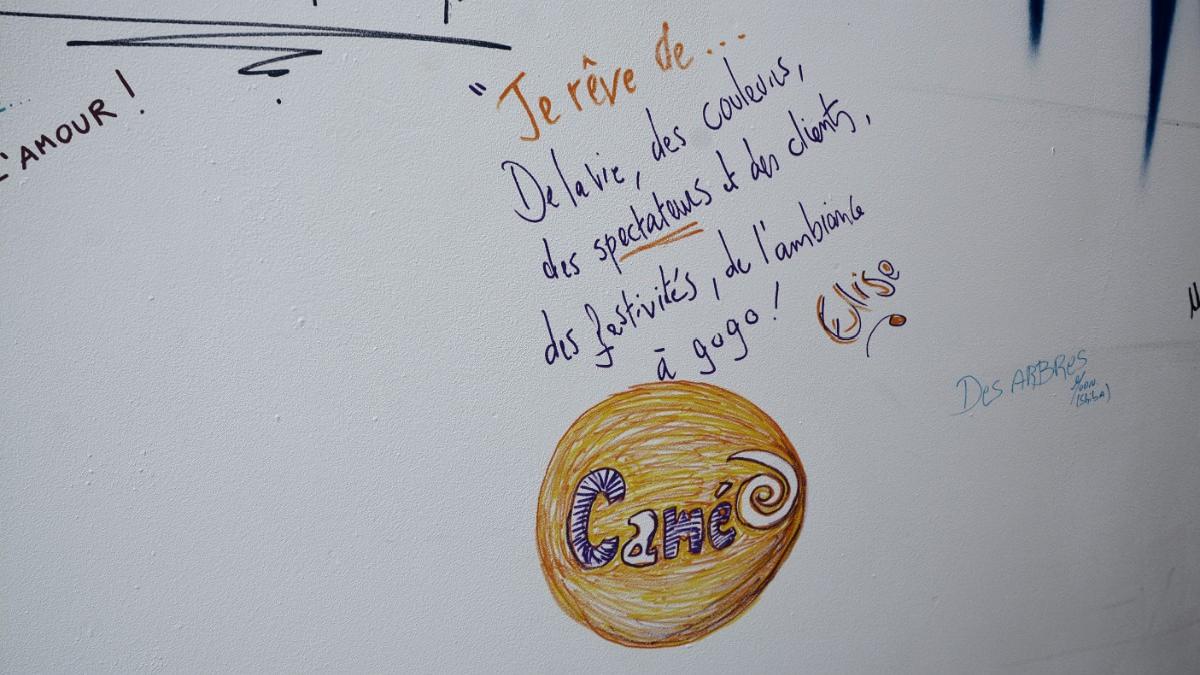 L'AMOUR !
" Je rêve de ...
De la vie, des couleurs,
des spectateurs et des clients,
des festivités, de l'ambiance
à gogo !
Elise
Des ARBRES
Camé